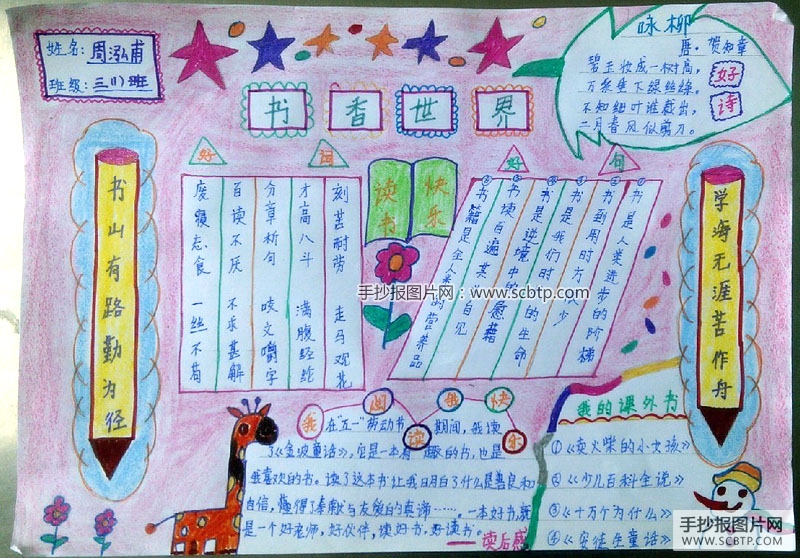 姓名:周泓甫
班级:三(1)班
书香世界
咏柳
唐·贺知章
碧玉妆成一树高,
万条垂下绿丝绦。
不知细叶谁裁出,
二月春风似剪刀。
好诗
书山有路勤为径
好词
刻苦耐劳 走马观花
才高八斗 满腹经纶
分章析句 咬文嚼字
百读不厌 不求甚解
废寝忘食 一丝不苟
读书
快乐
好句
书是人类进步的阶梯
书到用时方 少
书是我们时 的生命
书是逆境中的慰藉
书读百遍其 自见
书籍是全人类的营养品
学海无涯苦作舟
手抄报图片网:www.scbtp.com
我阅读我快乐
在"五一"劳动节期间,我读
了《金波童话》,它是一本有趣的书,也是
我喜欢的书。读了这本书让我明白了什么是善良和
自信,懂得了奉献与友爱的真谛……。一本好书,就
是一个好老师,好伙伴,读好书,好读书。
——读后感
我的课外书
①《卖火柴的小女孩》
②《少儿百科全说》
③《十万个为什么》
④《安徒生童话》
手抄报图片网
WWW.SCBTP.COM